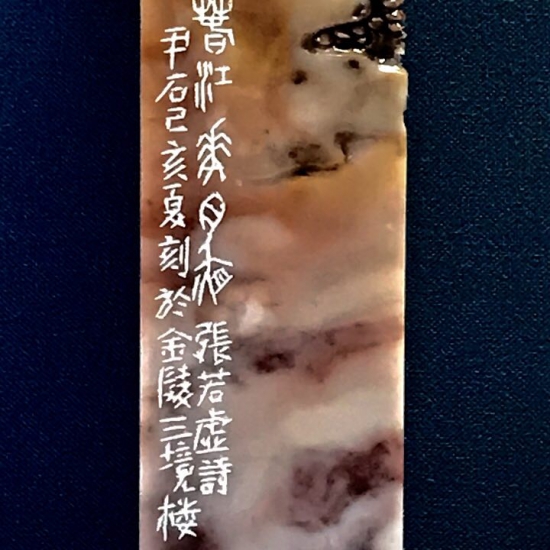 春江花月夜 張若虛詩
尹石己亥夏刻於金陵三境楼